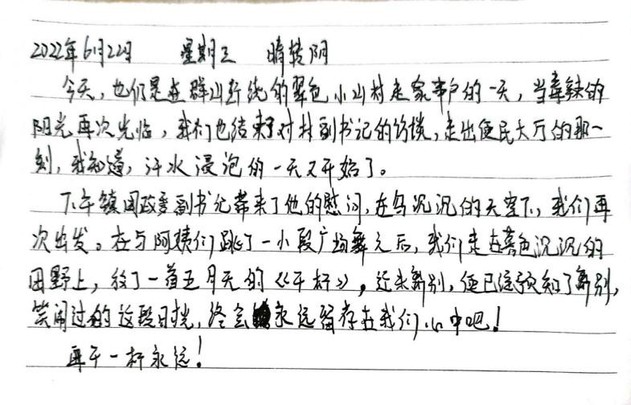 2022年6月22日 星期三 晴转阴
今天,也仍是在群山断绝的翠色小山村走家串户的一天,当毒辣的
阳光再次光临,我们也结束了对村副书记的访谈,走出便民大厅的那一
刻,我知道,汗水浸泡的一天又开始了。
下午镇团政委副书记带来了他的慰问,在乌沉沉的天空下,我们再
次出发。在与阿姨们跳了一小段广场舞之后,我们走在暮色沉沉的
田野上,放了一首五月天的《干杯》,还未离别,便已经预知了离别,
笑闹过的这段日光,终会永远留存在我们心中吧!
再干一杯永远!